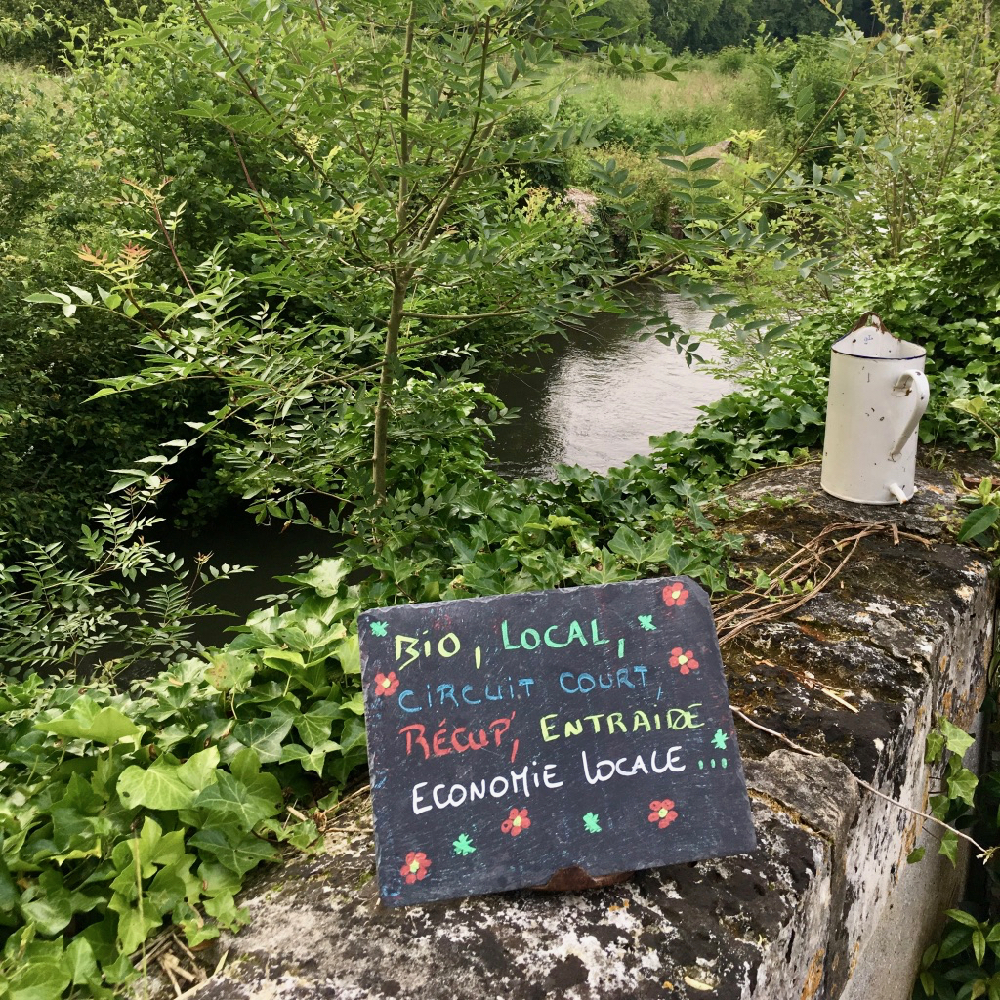 BiO, LOCAL,
CiRCUiT COURT,
RÉCUP', ENTRAIDE
ECONOMiE LOCALE...